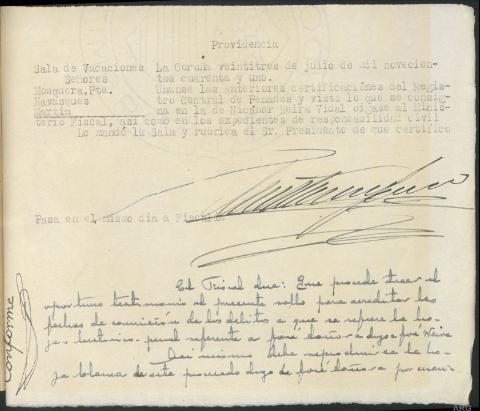 Providencia
Sala de Vacaciones La Coruña veintitres de julio de mil novecien-
Señores tos cuarenta y uno.
Mosquera, Pte. Unanse las anteriores certificaciónes del Regis-
Navasques tro Central de Penados y visto lo que se consig-
Martin na en la de Nicanor Neira Vidal digase al Minis-
terio Fiscal, asi como en los expedientes de responsabilidad civil
Lo mandó la Sala y rubrica el Sr. Presidente de que certifico
Pasa en el mismo dia a Fiscal
El Fiscal dice: Que procede traer el
oportuno testimonio al presente rollo para acreditar las
fechas de comisión de los delitos a que se refiere la ho-
ja penal referente a José digo José Neira
Asi mismo debe reproducirse la ho-
ja de este procesado digo de José por
Conforme